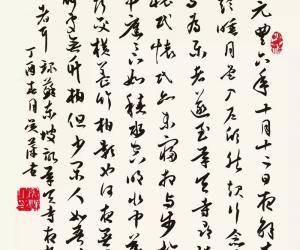 元豐六年十月十二日夜解衣
睡月色入户欣然起行念
與為樂者遂至承天寺尋
懷民懷民亦未寢相與步於
庭下如積水空明水中藻
交橫蓋竹柏影也何夜
處無竹柏但少閑人如吾
者耳 錄蘇東坡記承天寺夜
丁酉春月吴萍書